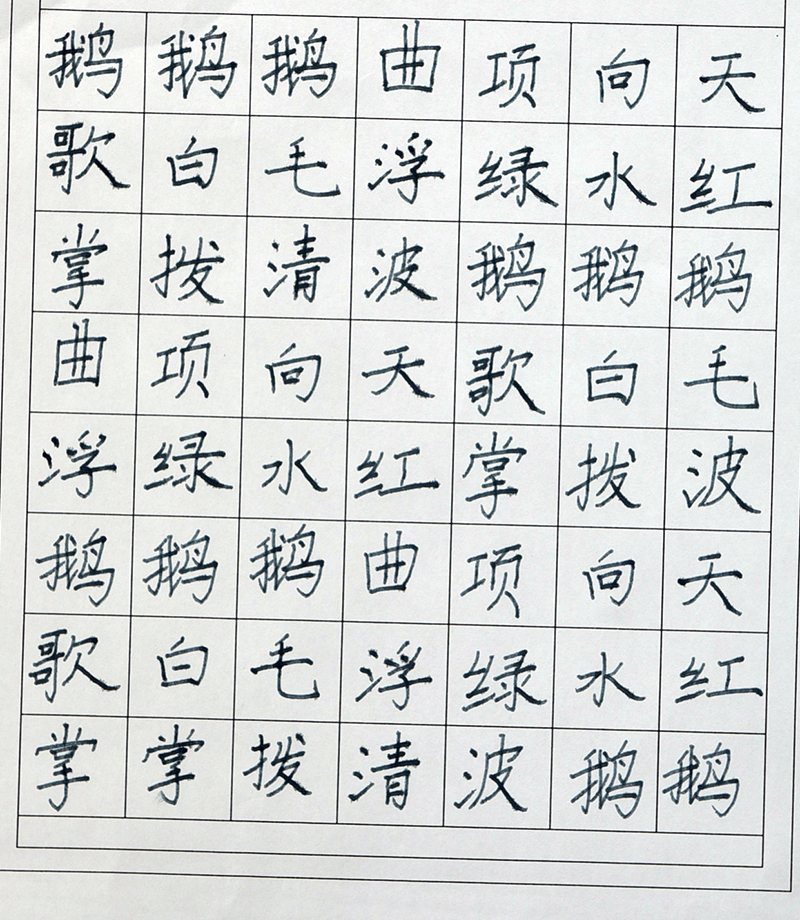 鹅鹅鹅曲项向天
歌白毛浮绿水红
掌拨清波鹅鹅鹅
曲项向天歌白毛
浮绿水红掌拨波
鹅鹅鹅曲项向天
歌白毛浮绿水红
掌掌拨清波鹅鹅